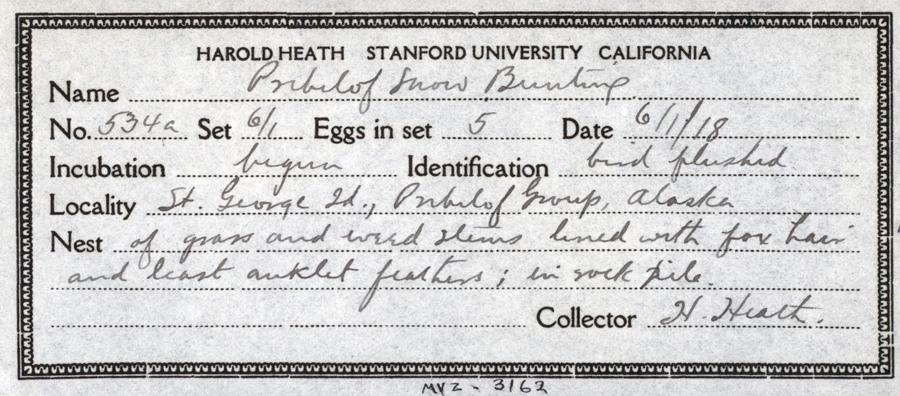 HAROLD HEATH STANFORD UNIVERSITY CALIFORNIA
Name Pribilof Snow Bunting
No. 534a Set 6/1 Eggs in set 5 Date 6/1/18
Incubation begun Identification bird flushed
Locality St. George Id., Pribilof Group, Alaska
Nest of grass and weed stems lined with fox hair
and least auklet feathers; in rock pile.
Collector H. Heath.
MVZ - 3162